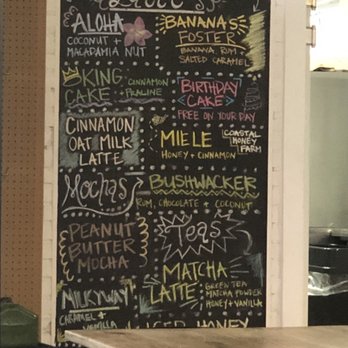 Lattes
ALOHA
COCONUT +
MACADAMIA NUT
BANANAS
FOSTER
BANANA, RUM +
SALTED CARAMEL
KING
CAKE
CINNAMON
+ PRALINE
BIRTHDAY
CAKE
FREE ON YOUR DAY
CINNAMON
OAT MILK
LATTE
MIELE
HONEY + CINNAMON
COASTAL
HONEY
FARM
Mochas
BUSHWACKER
RUM, CHOCOLATE + COCONUT
PEANUT
BUTTER
MOCHA
Teas
MILKYWAY
CARAMEL +
VANILLA
MATCHA
LATTE:
GREEN TEA
MATCHA POWDER
HONEY + VANILLA
ICED HONEY